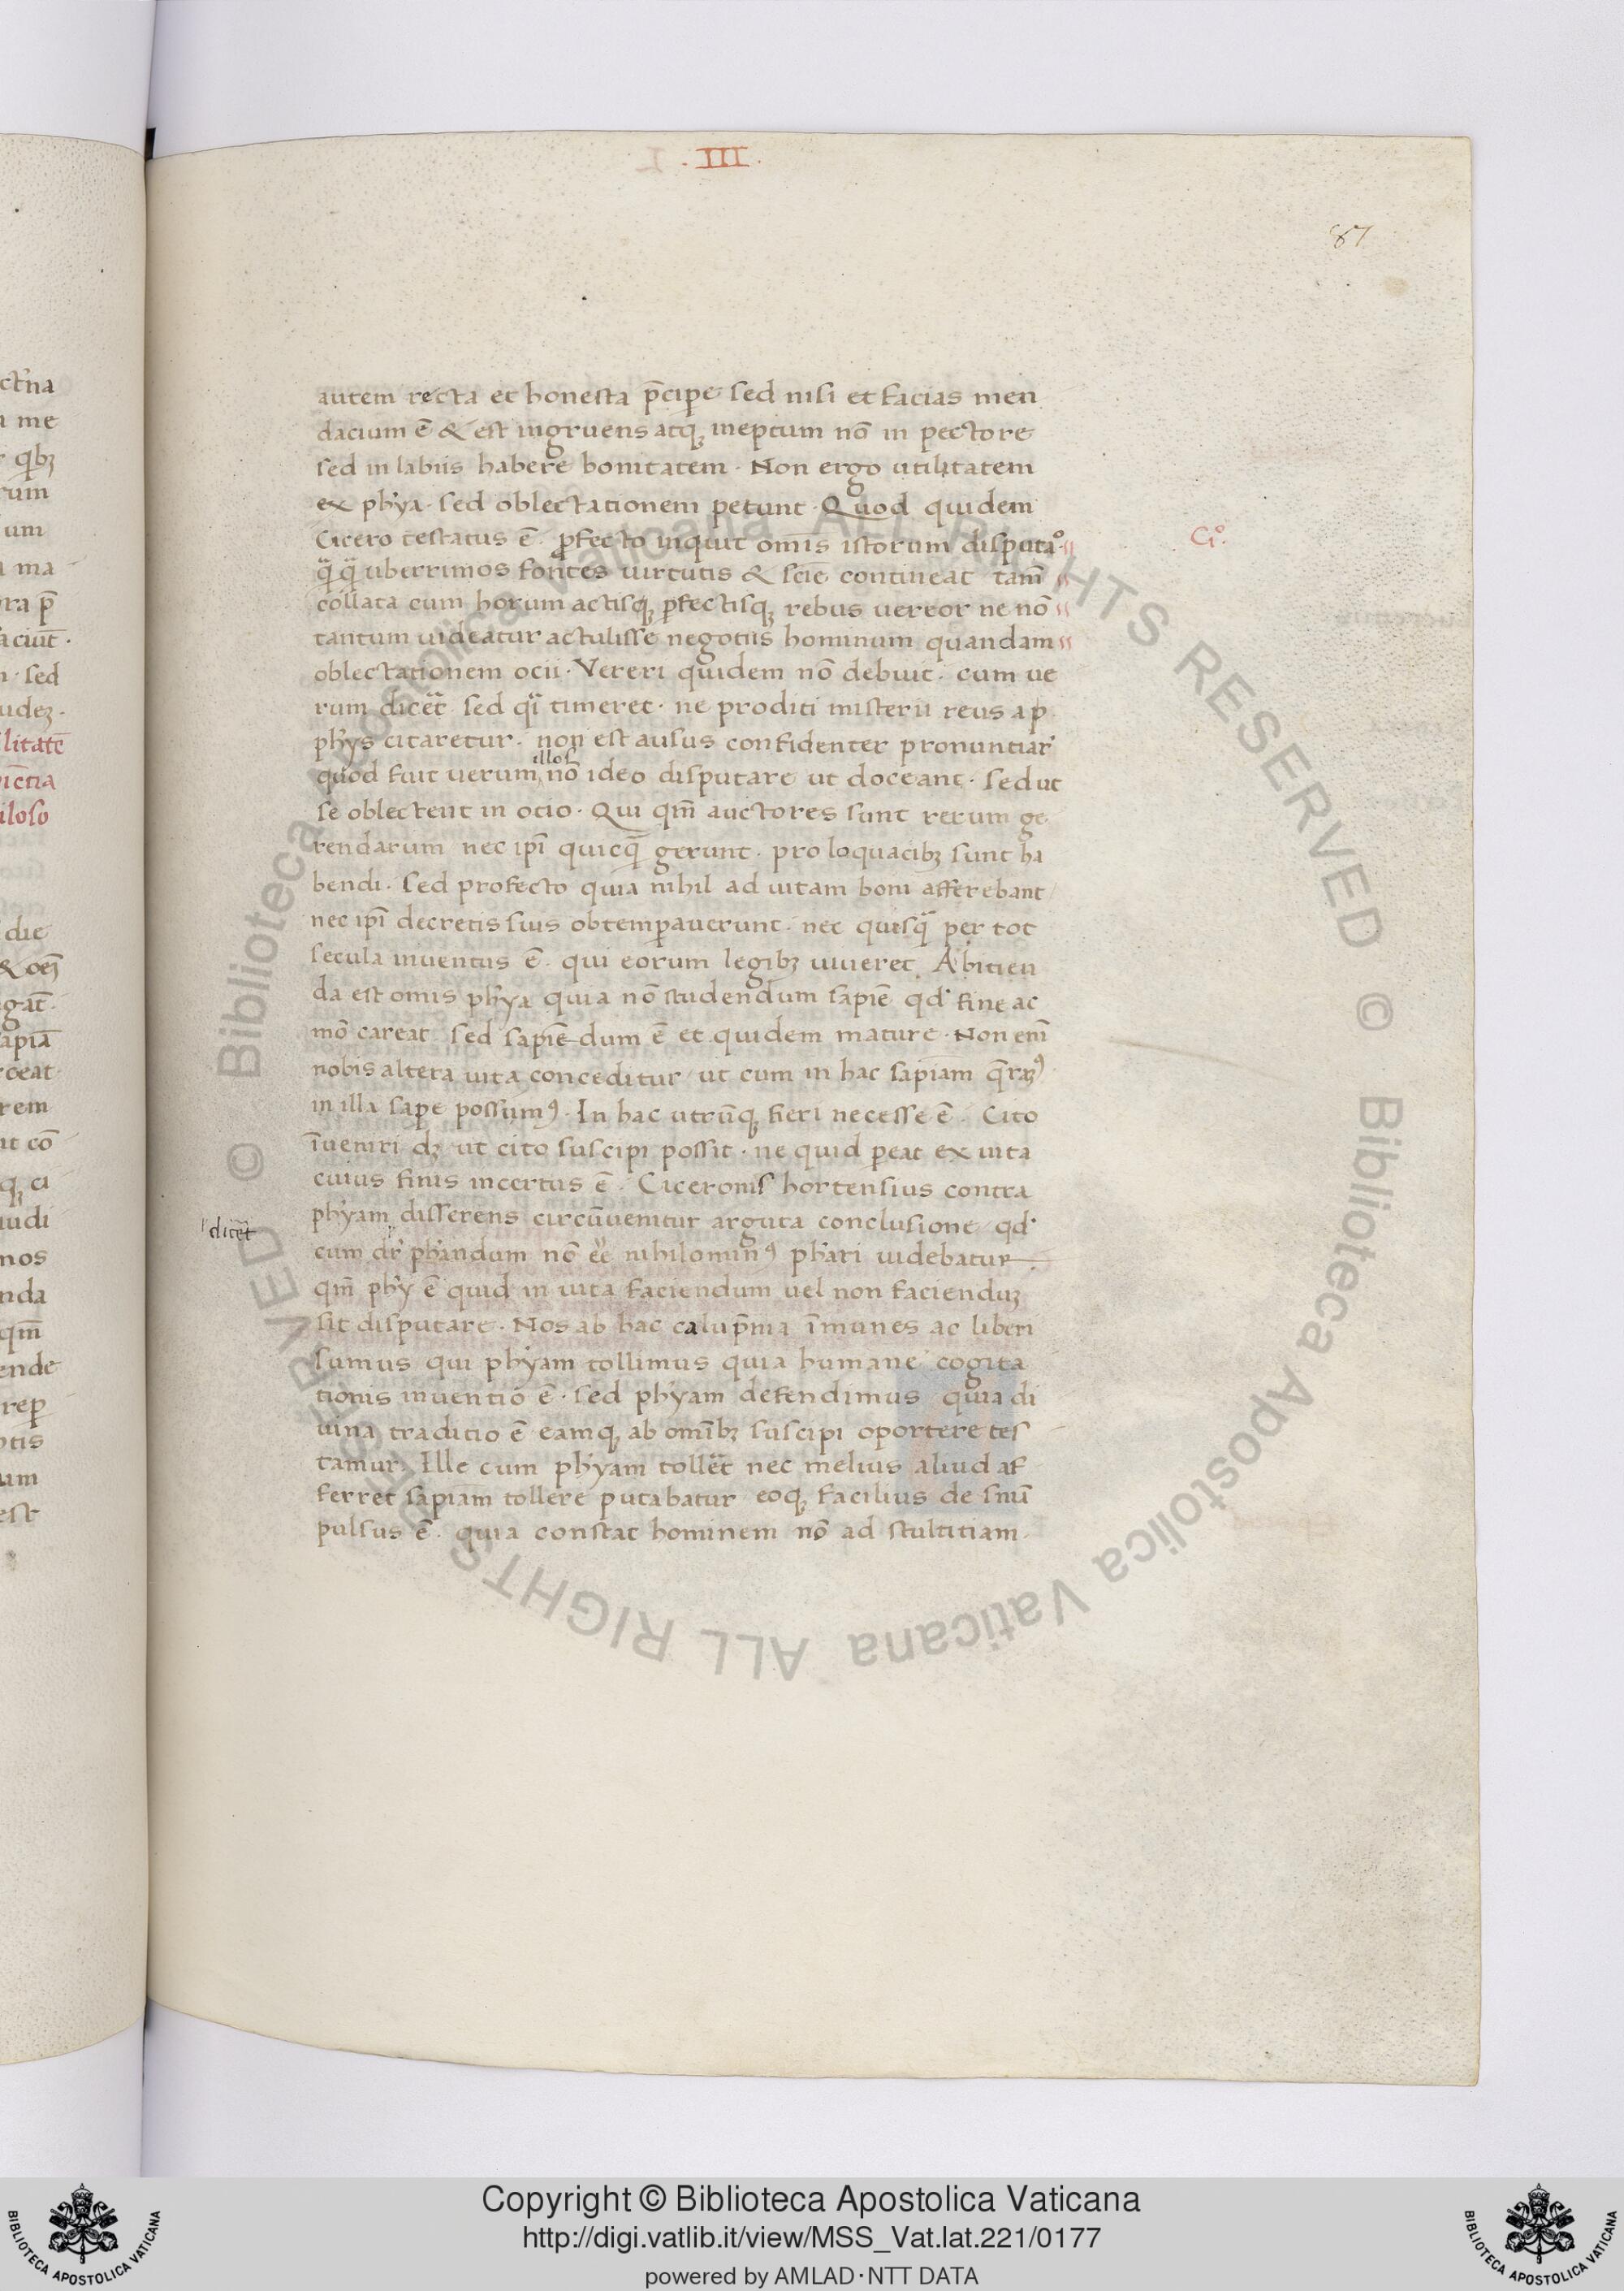 . III .
87
autem recta et honesta p̄cipe sed nisi et facias men
dacium ē & est ingruens atq; ineptum nō in pectore
sed in labiis habere bonitatem · Non ergo utilitatem
ex phỹa · sed oblectationem petunt · Quod quidem
Cicero testatus ē · ꝓfecto inquit om̄is istorum disputaᵒ·
Ciᵒ.
q̄ q̄ uberrimos fontes uirtutis & scīe contineat tam̄
collata cum horum actisq; ꝑfectisq; rebus uereor ne nō
tantum uideatur actulisse negotiis hominum quandam
oblectationem ocii · Vereri quidem nō debuit · cum ue
rum dicēt sed qī timeret · ne proditi misterii reus a ꝑ
phỹs citaretur · non est ausus confidenter pronuntiar̄
quod fuit uerum illos nō ideo disputare ut doceant · sed ut
se oblectent in ocio · Qui qm̄ auctores sunt rerum ge
rendarum nec ip̄i quicq̄ gerunt · pro loquacib; sunt ha
bendi · sed profecto quia nihil ad uitam boni afferebant
nec ip̄i decretis suis obtemꝑauerunt · nec quisq̄ per tot
secula inuentus ē · qui eorum legib; uiueret · Abitien
da est omis phỹa quia nō studendum sapiē qd̓ fine ac
mō careat sed sapiē dum ē et quidem mature · Non eni͞
nobis altera uita conceditur ut cum in hac sapiam q̄ram⁹
in illa sape possum⁹ · In hac utrūq; fieri necesse ē · Cito
īueniri d; ut cito suscipi possit · ne quid ꝑeat ex uita
cuius finis incertus ē · Ciceronis hortensius contra
phỹam disserens circūuenitur arguta conclusione qd̓
l dicēt
cum dr̄ phāndum nō eē nihilomin⁹ phāri uidebatur
qm̄ phỹ ē quid in uita faciendum uel non faciendu;
sit disputare · Nos ab hac calup̄nia īmunes ac liberi
sumus qui phỹam tollimus quia humane cogita
tionis inuentio ē · sed phỹam defendimus quia di
uina traditio ē eamq; ab omīb; suscipi oportere tes
tamur · Ille cum phỹam tollēt nec melius aliud af
ferret sapiam tollere putabatur eoq; facilius de snū
pulsus ē · quia constat hominem nō ad stultitiam ·
ct̄na
me
qb;
rum
um
ma
ra p̄
aciūt ·
· sed
ude; ·
litatē
iētia
iloso
die
& oēs
gāt ·
apiā
ceat
rem
ut cō
q; ci
udi
mos
nda
qm̄
ende
reꝑ
tis
um
est
© Biblioteca Apostolica Vaticana ALL RIGHTS RESERVED © Biblioteca Apostolica Vaticana ALL RIGHTS RESERVED
Copyright © Biblioteca Apostolica Vaticana
http://digi.vatlib.it/view/MSS_Vat.lat.221/0177
powered by AMLAD·NTT DATA
BIBLIOTECA APOSTOLICA VATICANA
BIBLIOTECA APOSTOLICA VATICANA